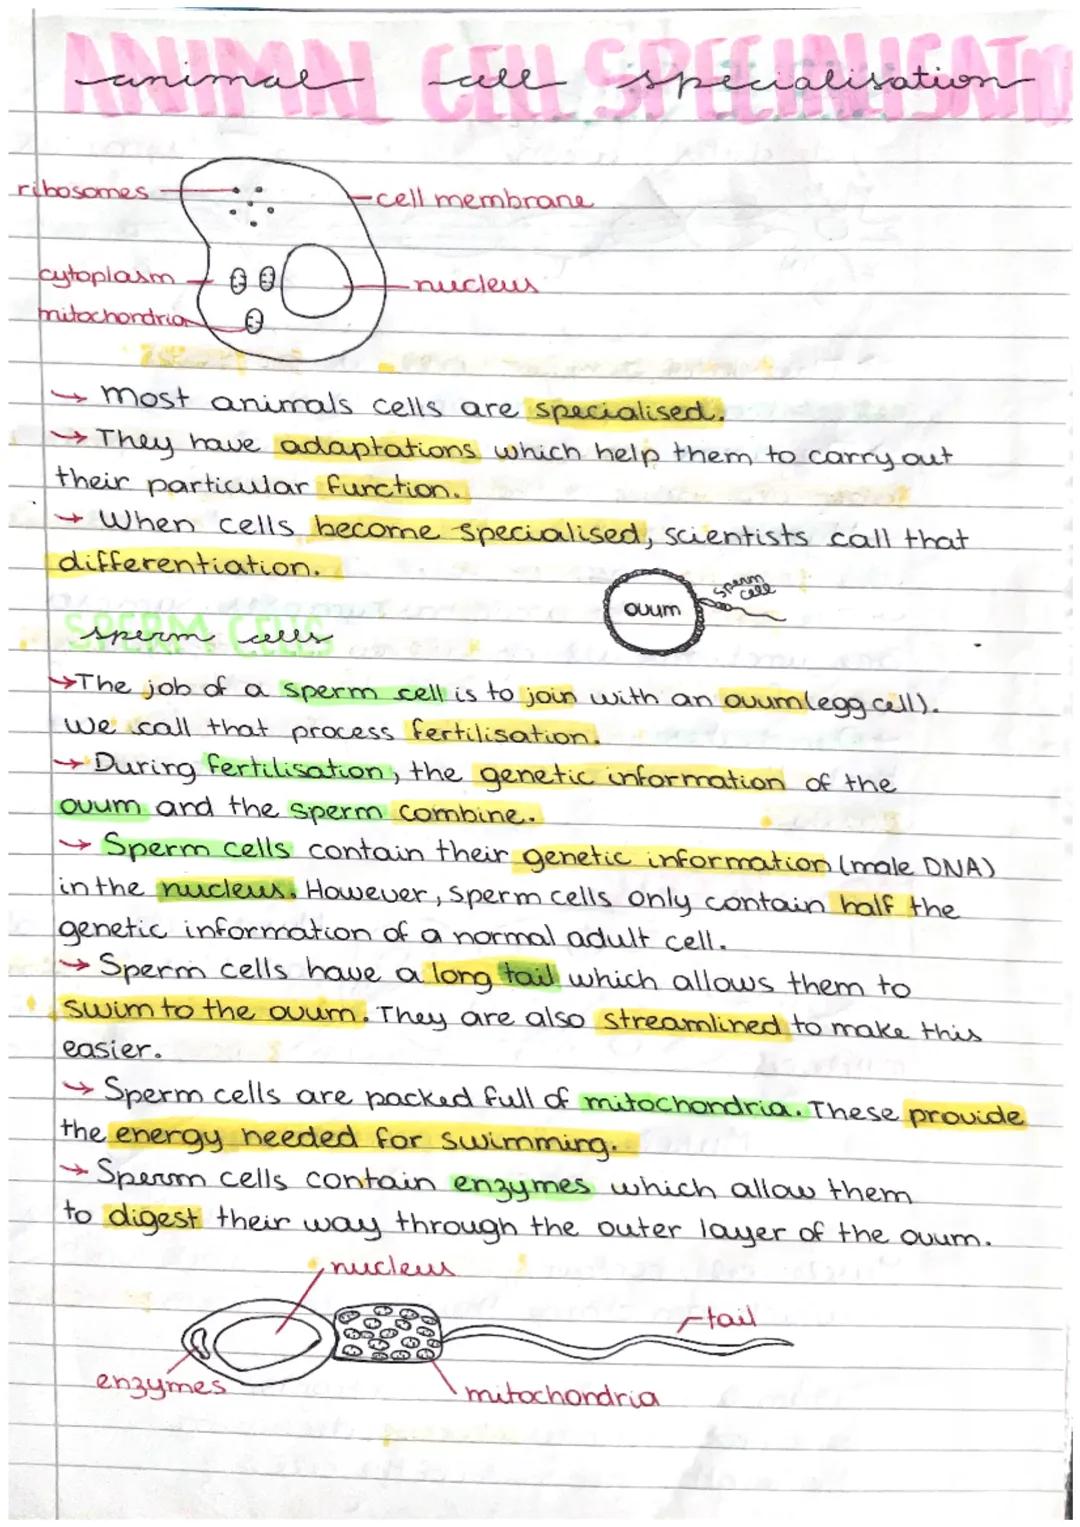 ANIMAL CELL SPECIALISATIO
animal cell specialisation
ribosomes
cell membrane
cytoplasm
nucleus
mitochondria
→ Most animals cells are specialised.
→ They have adaptations which help them to carry out
their particular function.
→ When cells become specialised, scientists call that
differentiation.
sperm
cell
ovum
SPERM CELLS
sperm cells
→ The job of a sperm cell is to join with an ovum (egg cell).
We call that process fertilisation.
→ During fertilisation, the genetic information of the
ovum and the sperm combine.
→ Sperm cells contain their genetic information (male DNA)
in the nucleus. However, sperm cells only contain half the
genetic information of a normal adult cell.
→ Sperm cells have a long tail which allows them to
swim to the ovum. They are also streamlined to make this
easier.
→ Sperm cells are packed full of mitochondria. These provide
the energy needed for swimming.
→ Sperm cells contain enzymes which allow them
to digest their way through the outer layer of the ovum.
nucleus
tail
enzymes
mitochondria